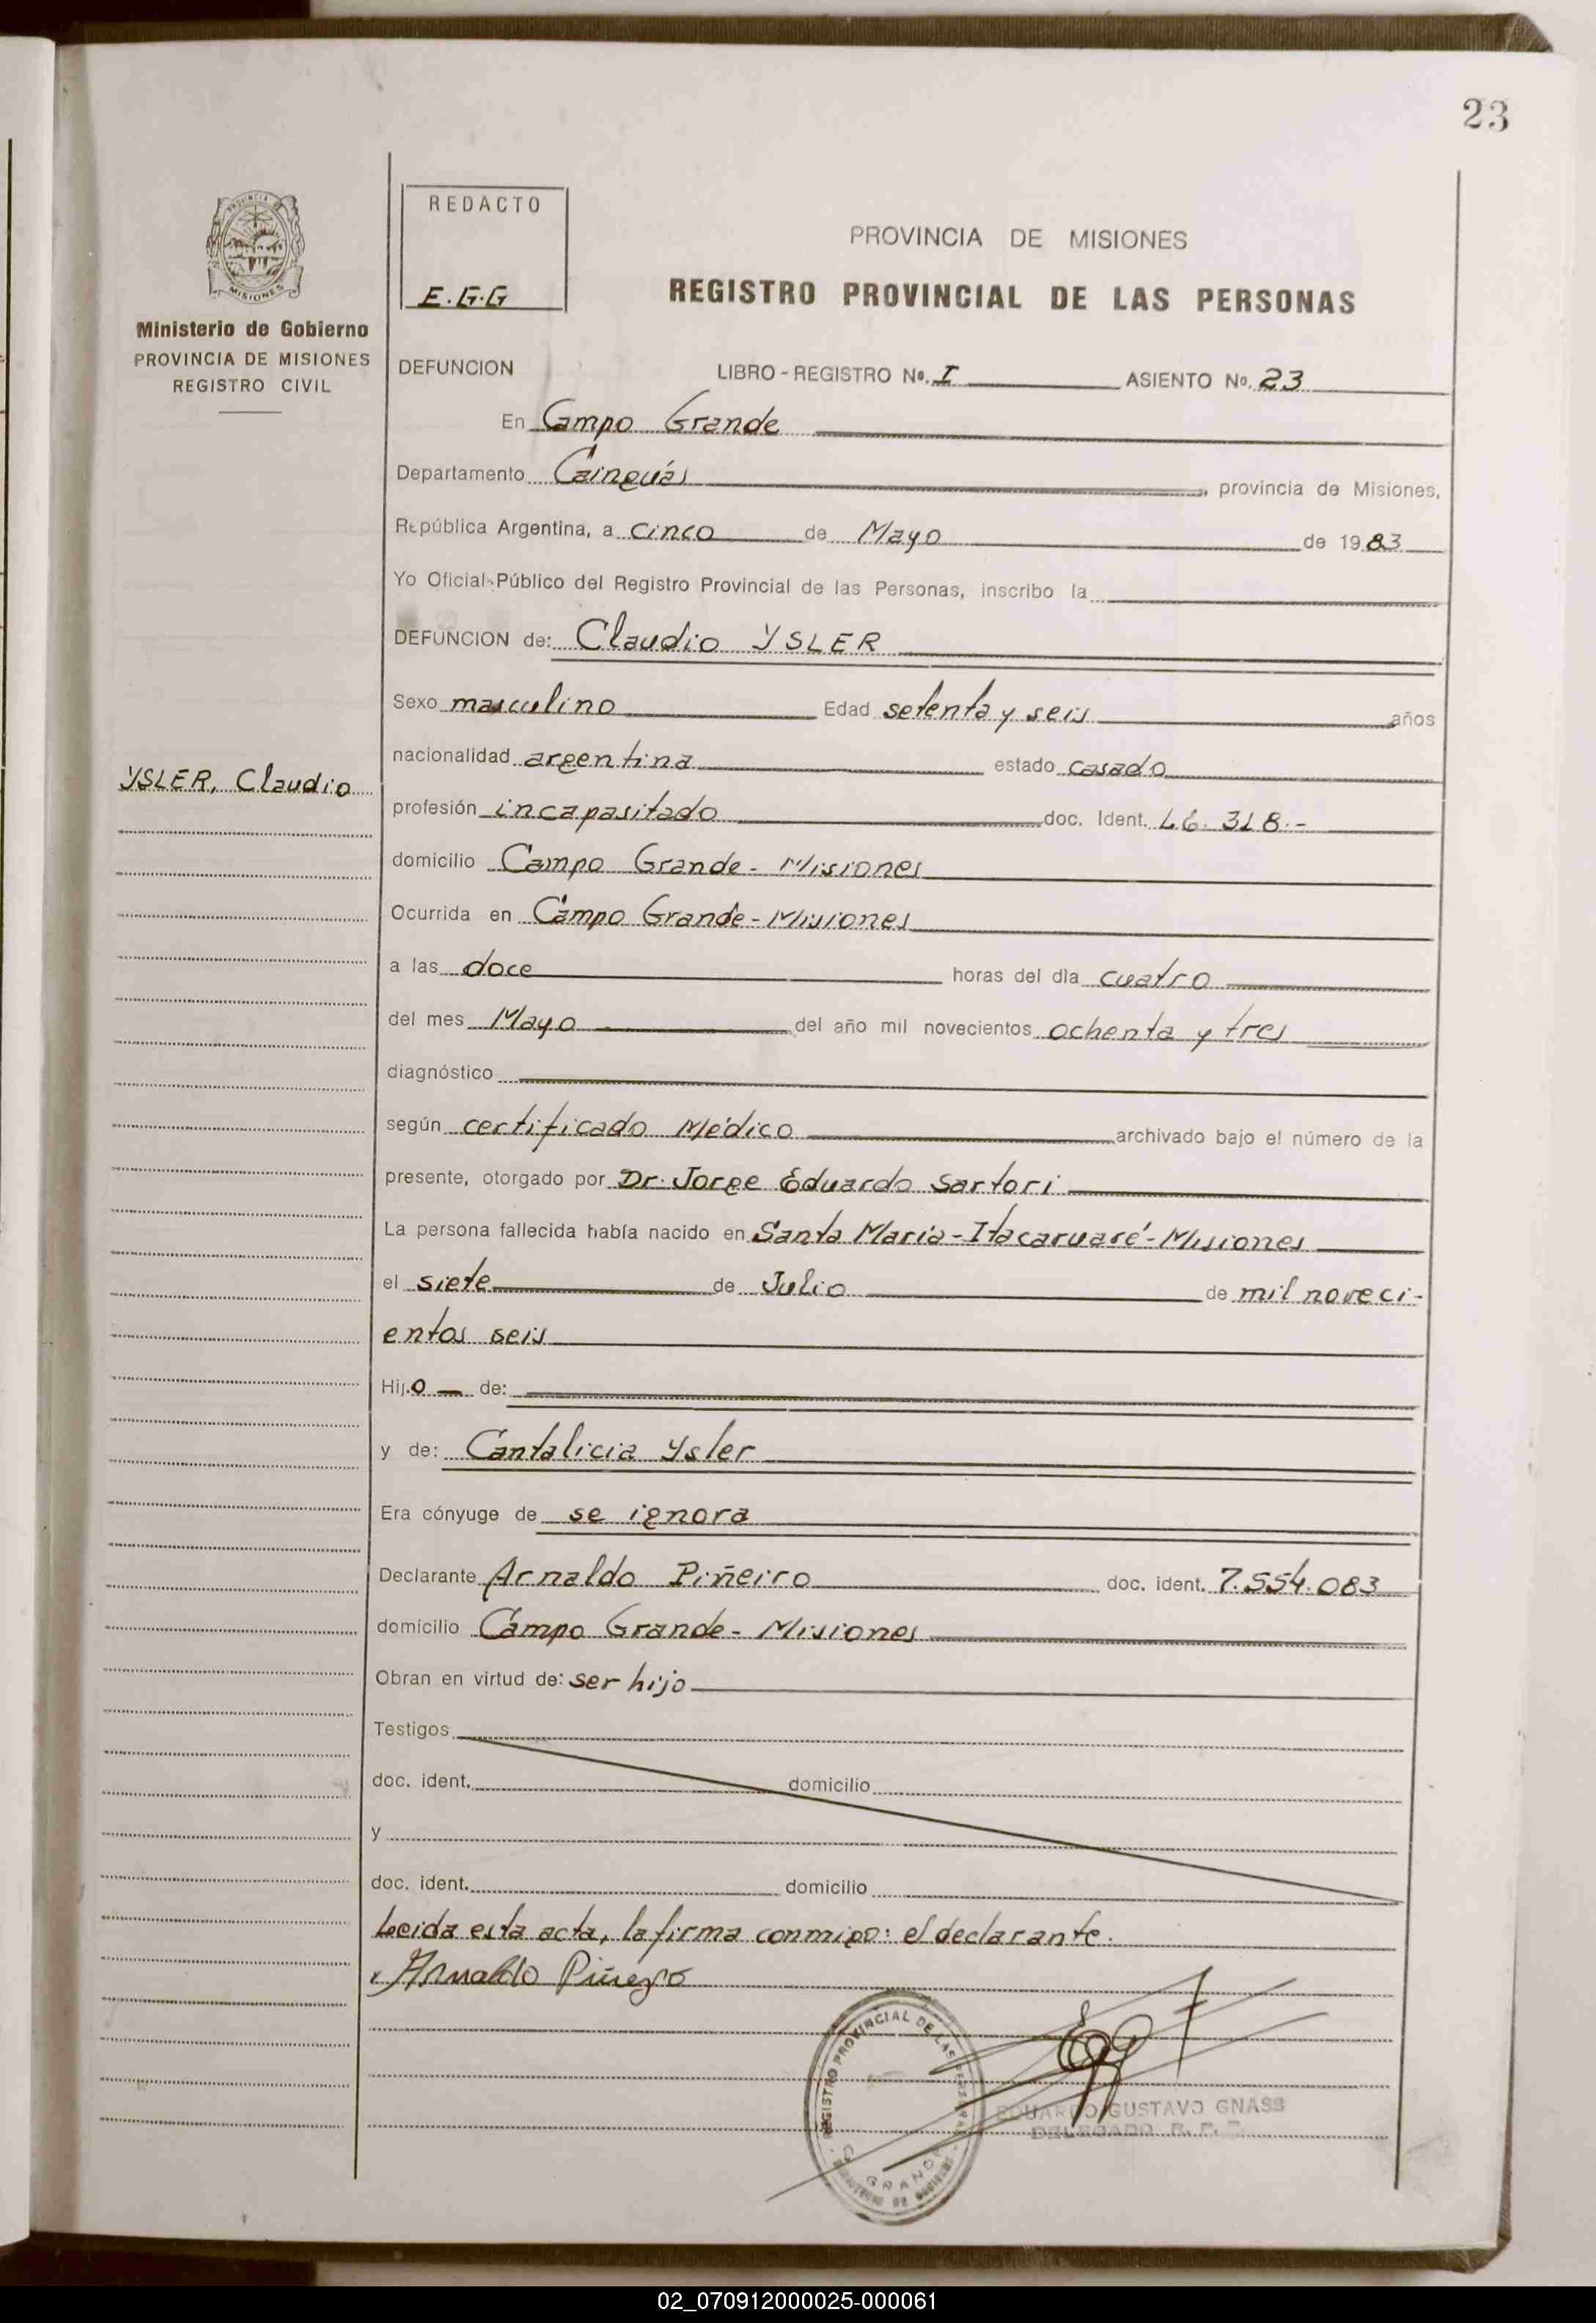 23
PROVINCIA DE MISIONES
Ministerio de Gobierno
PROVINCIA DE MISIONES
REGISTRO CIVIL
REDACTO
E.G.G
PROVINCIA DE MISIONES
REGISTRO PROVINCIAL DE LAS PERSONAS
DEFUNCION LIBRO - REGISTRO Nº. I ASIENTO No. 23
En Campo Grande
Departamento Cainguás, provincia de Misiones,
República Argentina, a cinco de Mayo de 1983
Yo Oficial Público del Registro Provincial de las Personas, inscribo la
DEFUNCION de: Claudio YSLER
Sexo masculino Edad setenta y seis años
nacionalidad argentina estado casado
YSLER, Claudio
profesión incapasitado doc. Ident. L6. 318.-
domicilio Campo Grande - Misiones
Ocurrida en Campo Grande - Misiones
a las doce horas del día cuatro
del mes Mayo del año mil novecientos ochenta y tres
diagnóstico
según certificado Médico archivado bajo el número de la
presente, otorgado por Dr. Jorge Eduardo Sartori
La persona fallecida había nacido en Santa María - Itacaruaré - Misiones
el siete de Julio de mil noveci-
entos seis
Hij.o de:
y de: Cantalicia Ysler
Era cónyuge de se ignora
Declarante Arnaldo Piñeiro doc. ident. 7.554.083
domicilio Campo Grande - Misiones
Obran en virtud de: ser hijo
Testigos
doc. ident. domicilio
y
doc. ident. domicilio
Leida esta acta, la firma conmigo: el declarante.
Arnaldo Piñeyro
REGISTRO PROVINCIAL DE LAS PERSONAS
GRANDE
EDUARDO GUSTAVO GNASS
DELEGADO R. P. P.
02_070912000025-000061